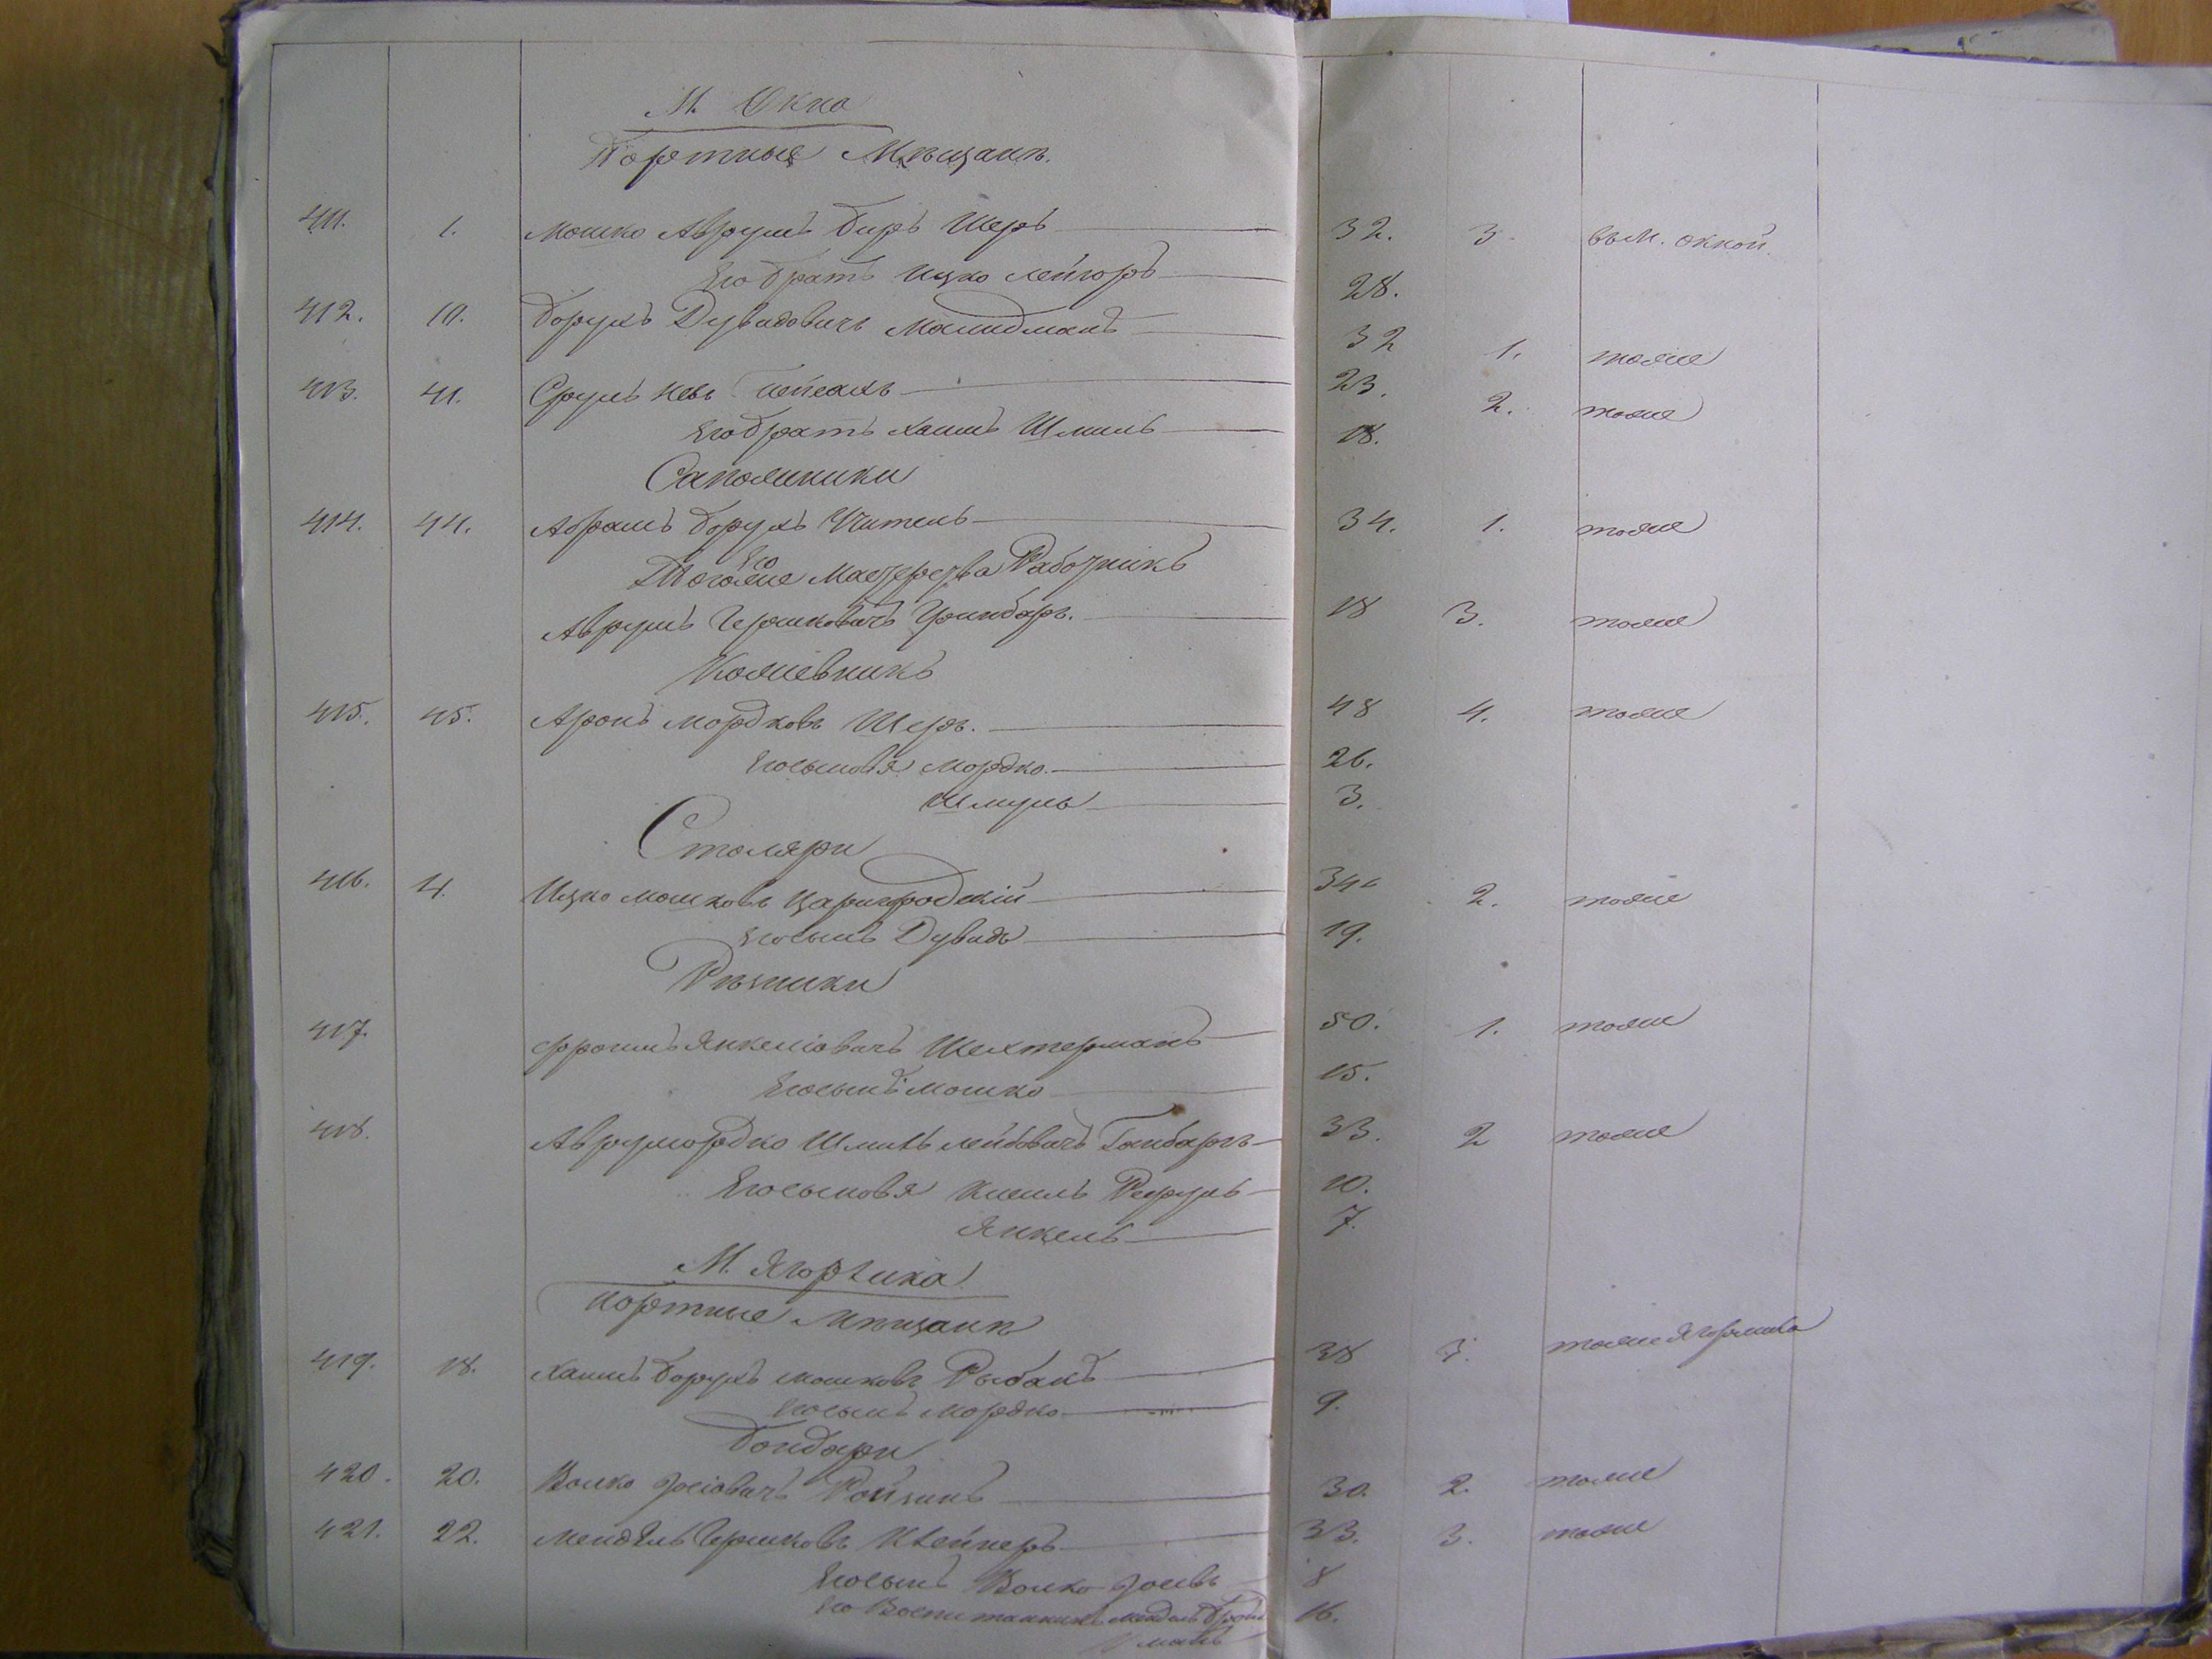 М. Окно
Портные Мѣщанъ.
411. 1. Мошко Аврумъ Беръ Шеръ 32. 3. въ М. Окной.
Его братъ Ицко Лейзоръ 28.
412. 10. Борухъ Дувидовичъ 32 1. тоже
413. 41. Сруль Пейсахъ 23. 2. тоже
Его братъ Хаимъ Шмиль 18.
Сапожники
414. 44. Абрамъ Борухъ Учитель 34. 1. тоже
Его
Тогоже Мастерства Работникъ
Аврумъ Гершковичъ 18 3. тоже
Кожевникъ
415. 45. Аронъ Мордковъ Шеръ. 48 4. тоже
Его сыновья Мордко. 26.
Шмуль 3.
Столяри
416. 4. Ицко Мошковъ Царигродскій 34 2. тоже
Его сынъ Дувидъ 19.
Рѣзники
417. Фроимъ Янкеліовичъ Шехтерманъ 50. 1. тоже
Его сынъ Мошко 15.
418. Аврумордко Шмиль Лейбовичъ 33. 2 тоже
Его сыновья Кисиль 10.
Янкель 7.
М. Ягорлика
портные Мѣщанъ
419. 18. Хаимъ Борухъ Мошковъ Рыбакъ 38 3. тоже Ягорлика
Его сынъ Мордко 9.
Бондари
420. 20. Волко Ройзинъ 30. 2. тоже
421. 22. Мендель Гершковъ Клейнеръ 33. 3. тоже
Его сынъ Волко 8
Его Воспитанникъ Мендель 16.